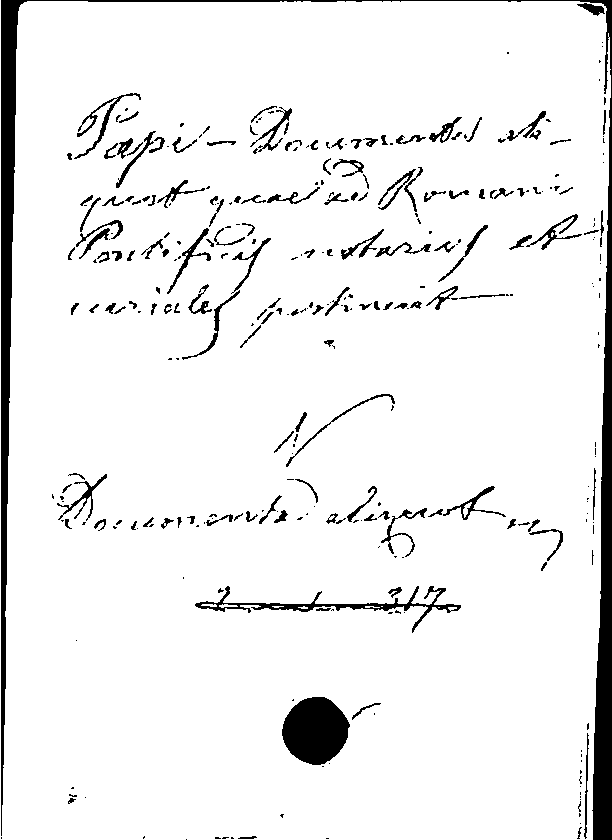 Papi - Documenta ali-
quot quae ad Romani
Pontificis notarios et
curiales pertineat
V
Documenta aliquot
317